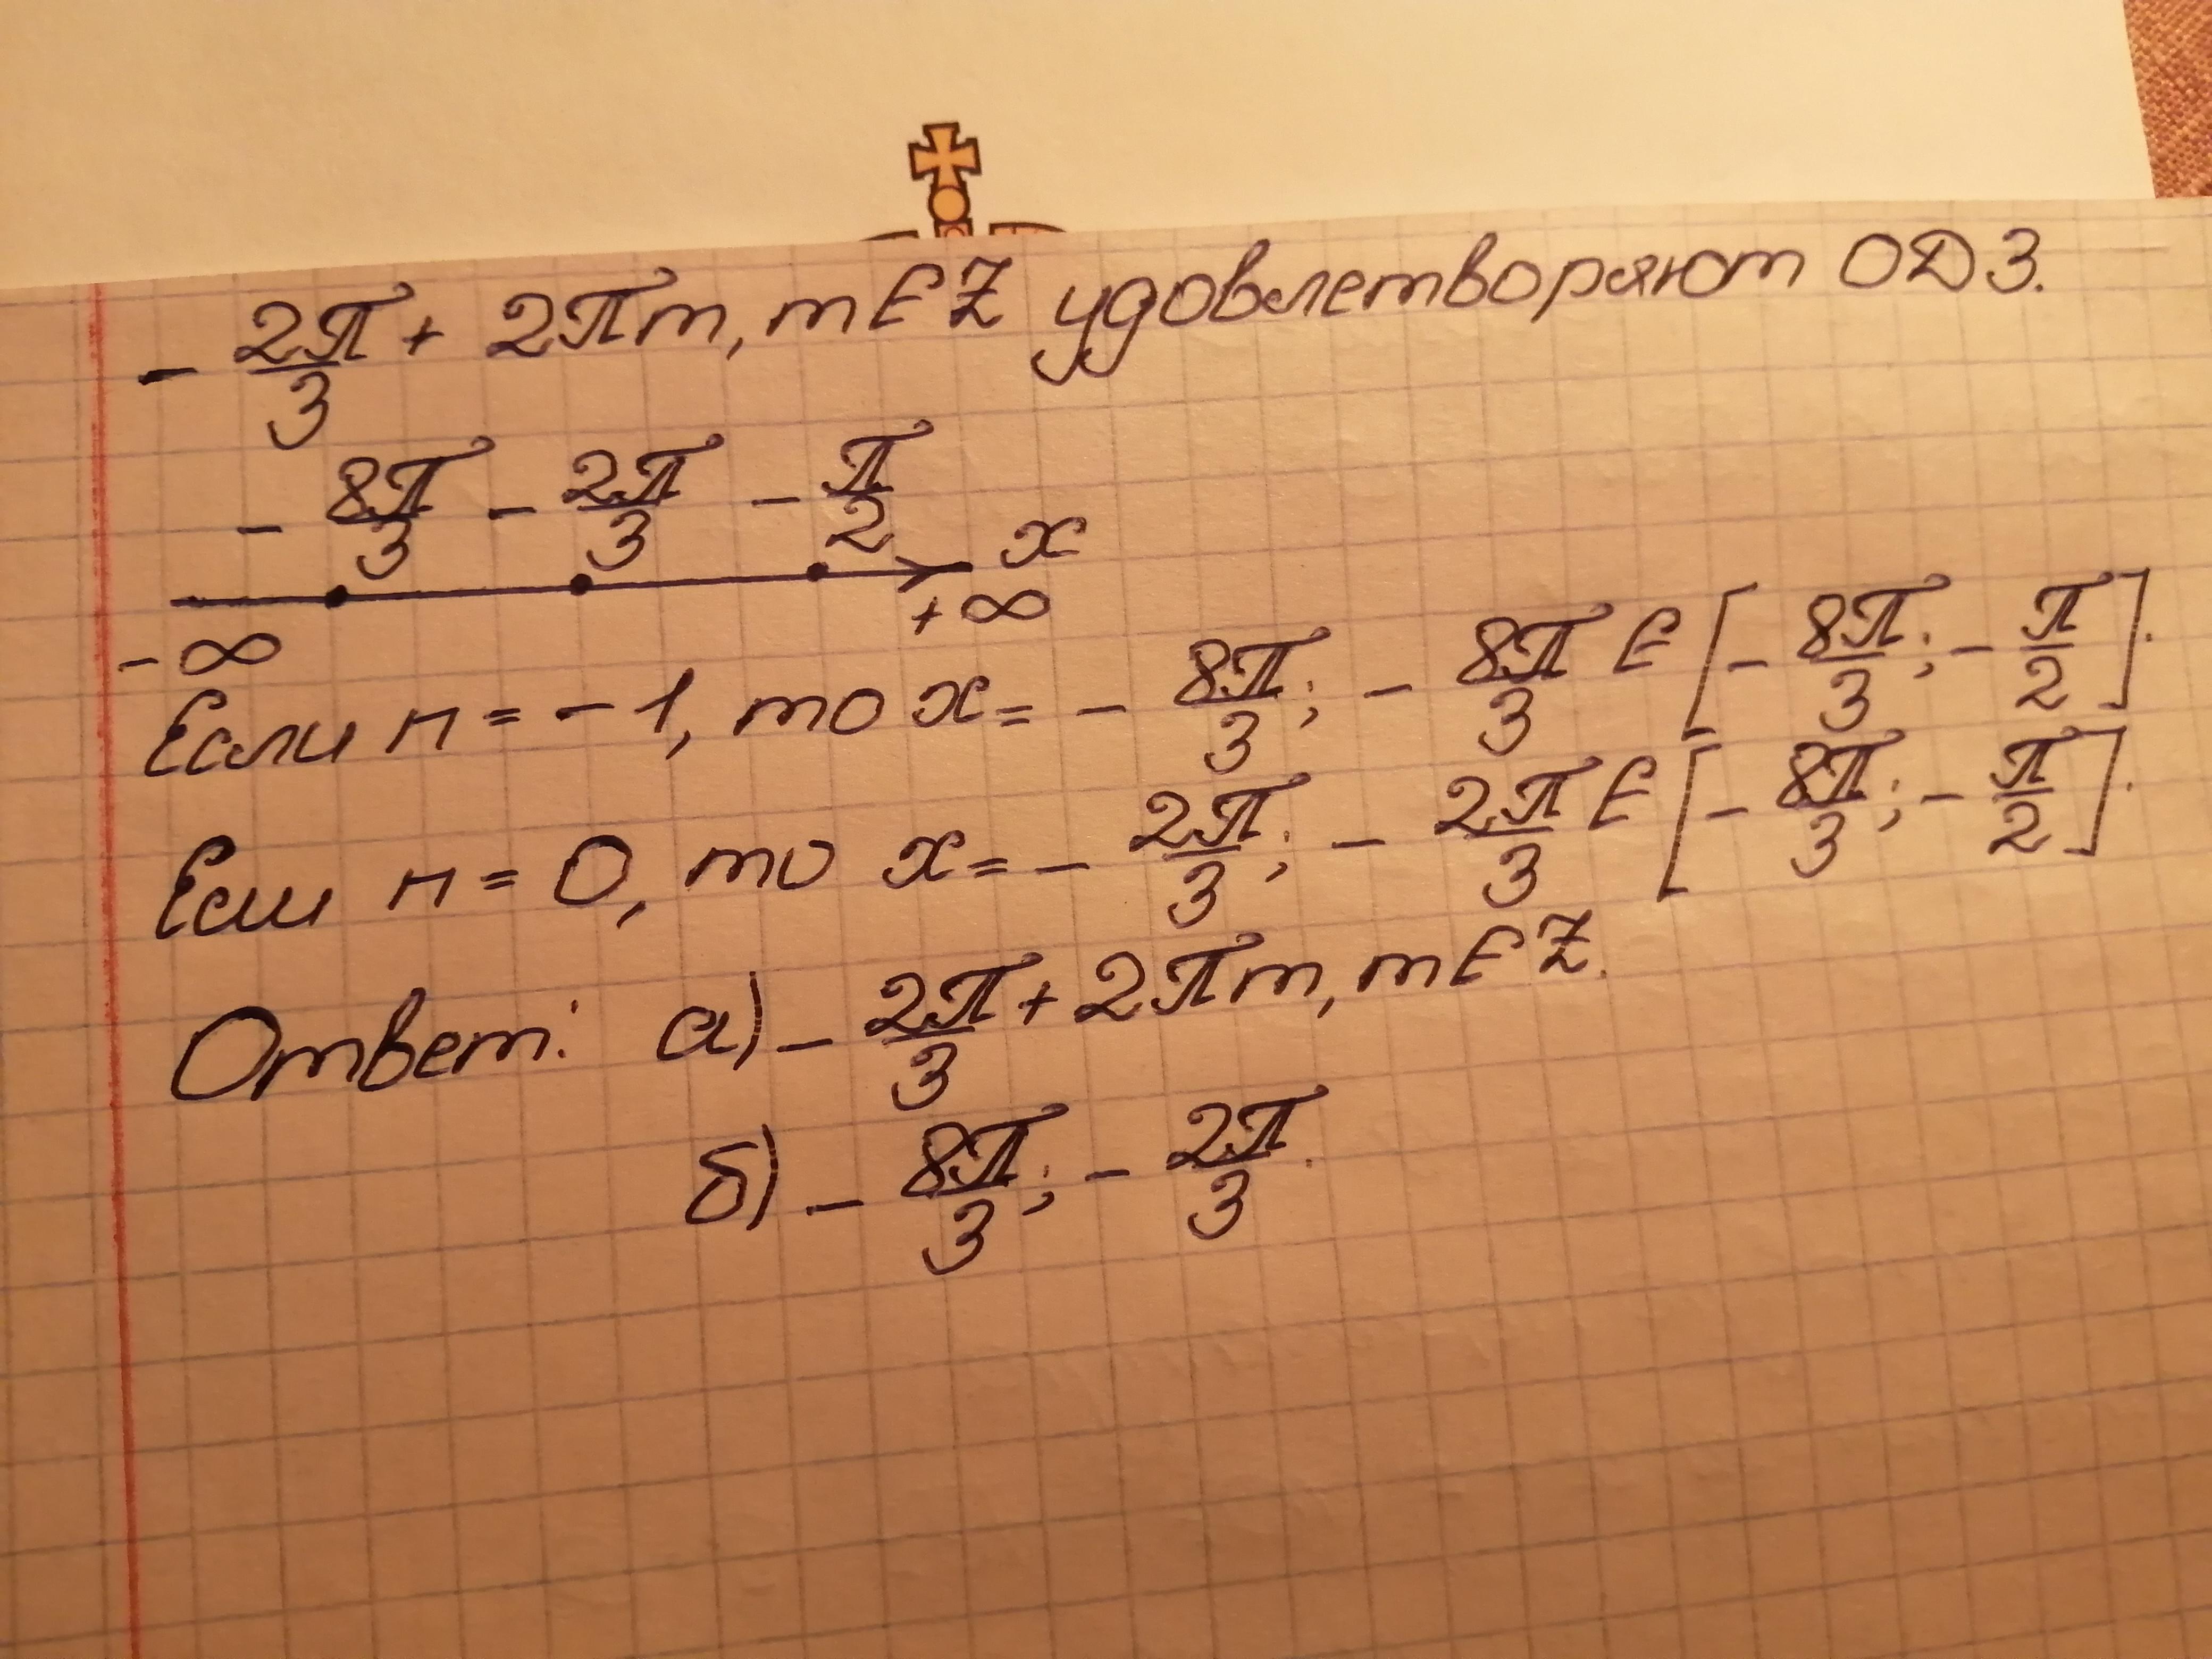 - 2π/3 + 2πm, m∈Z удовлетворяют ОДЗ.
- 8π/3 - 2π/3 - π/2 x
-∞ +∞
Если n = -1, то x = - 8π/3; - 8π/3 ∈ [- 8π/3; - π/2].
Если n = 0, то x = - 2π/3; - 2π/3 ∈ [- 8π/3; - π/2].
Ответ: а) - 2π/3 + 2πm, m∈Z.
б) - 8π/3; - 2π/3.